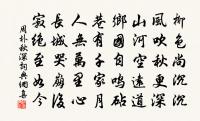 柳色尚沉沉
風吹秋更深
山河空遠道
鄉國自鳴砧
巷有千家月
人無萬里心
長城哭崩後
寂絕至如今
周朴秋深詞典網書